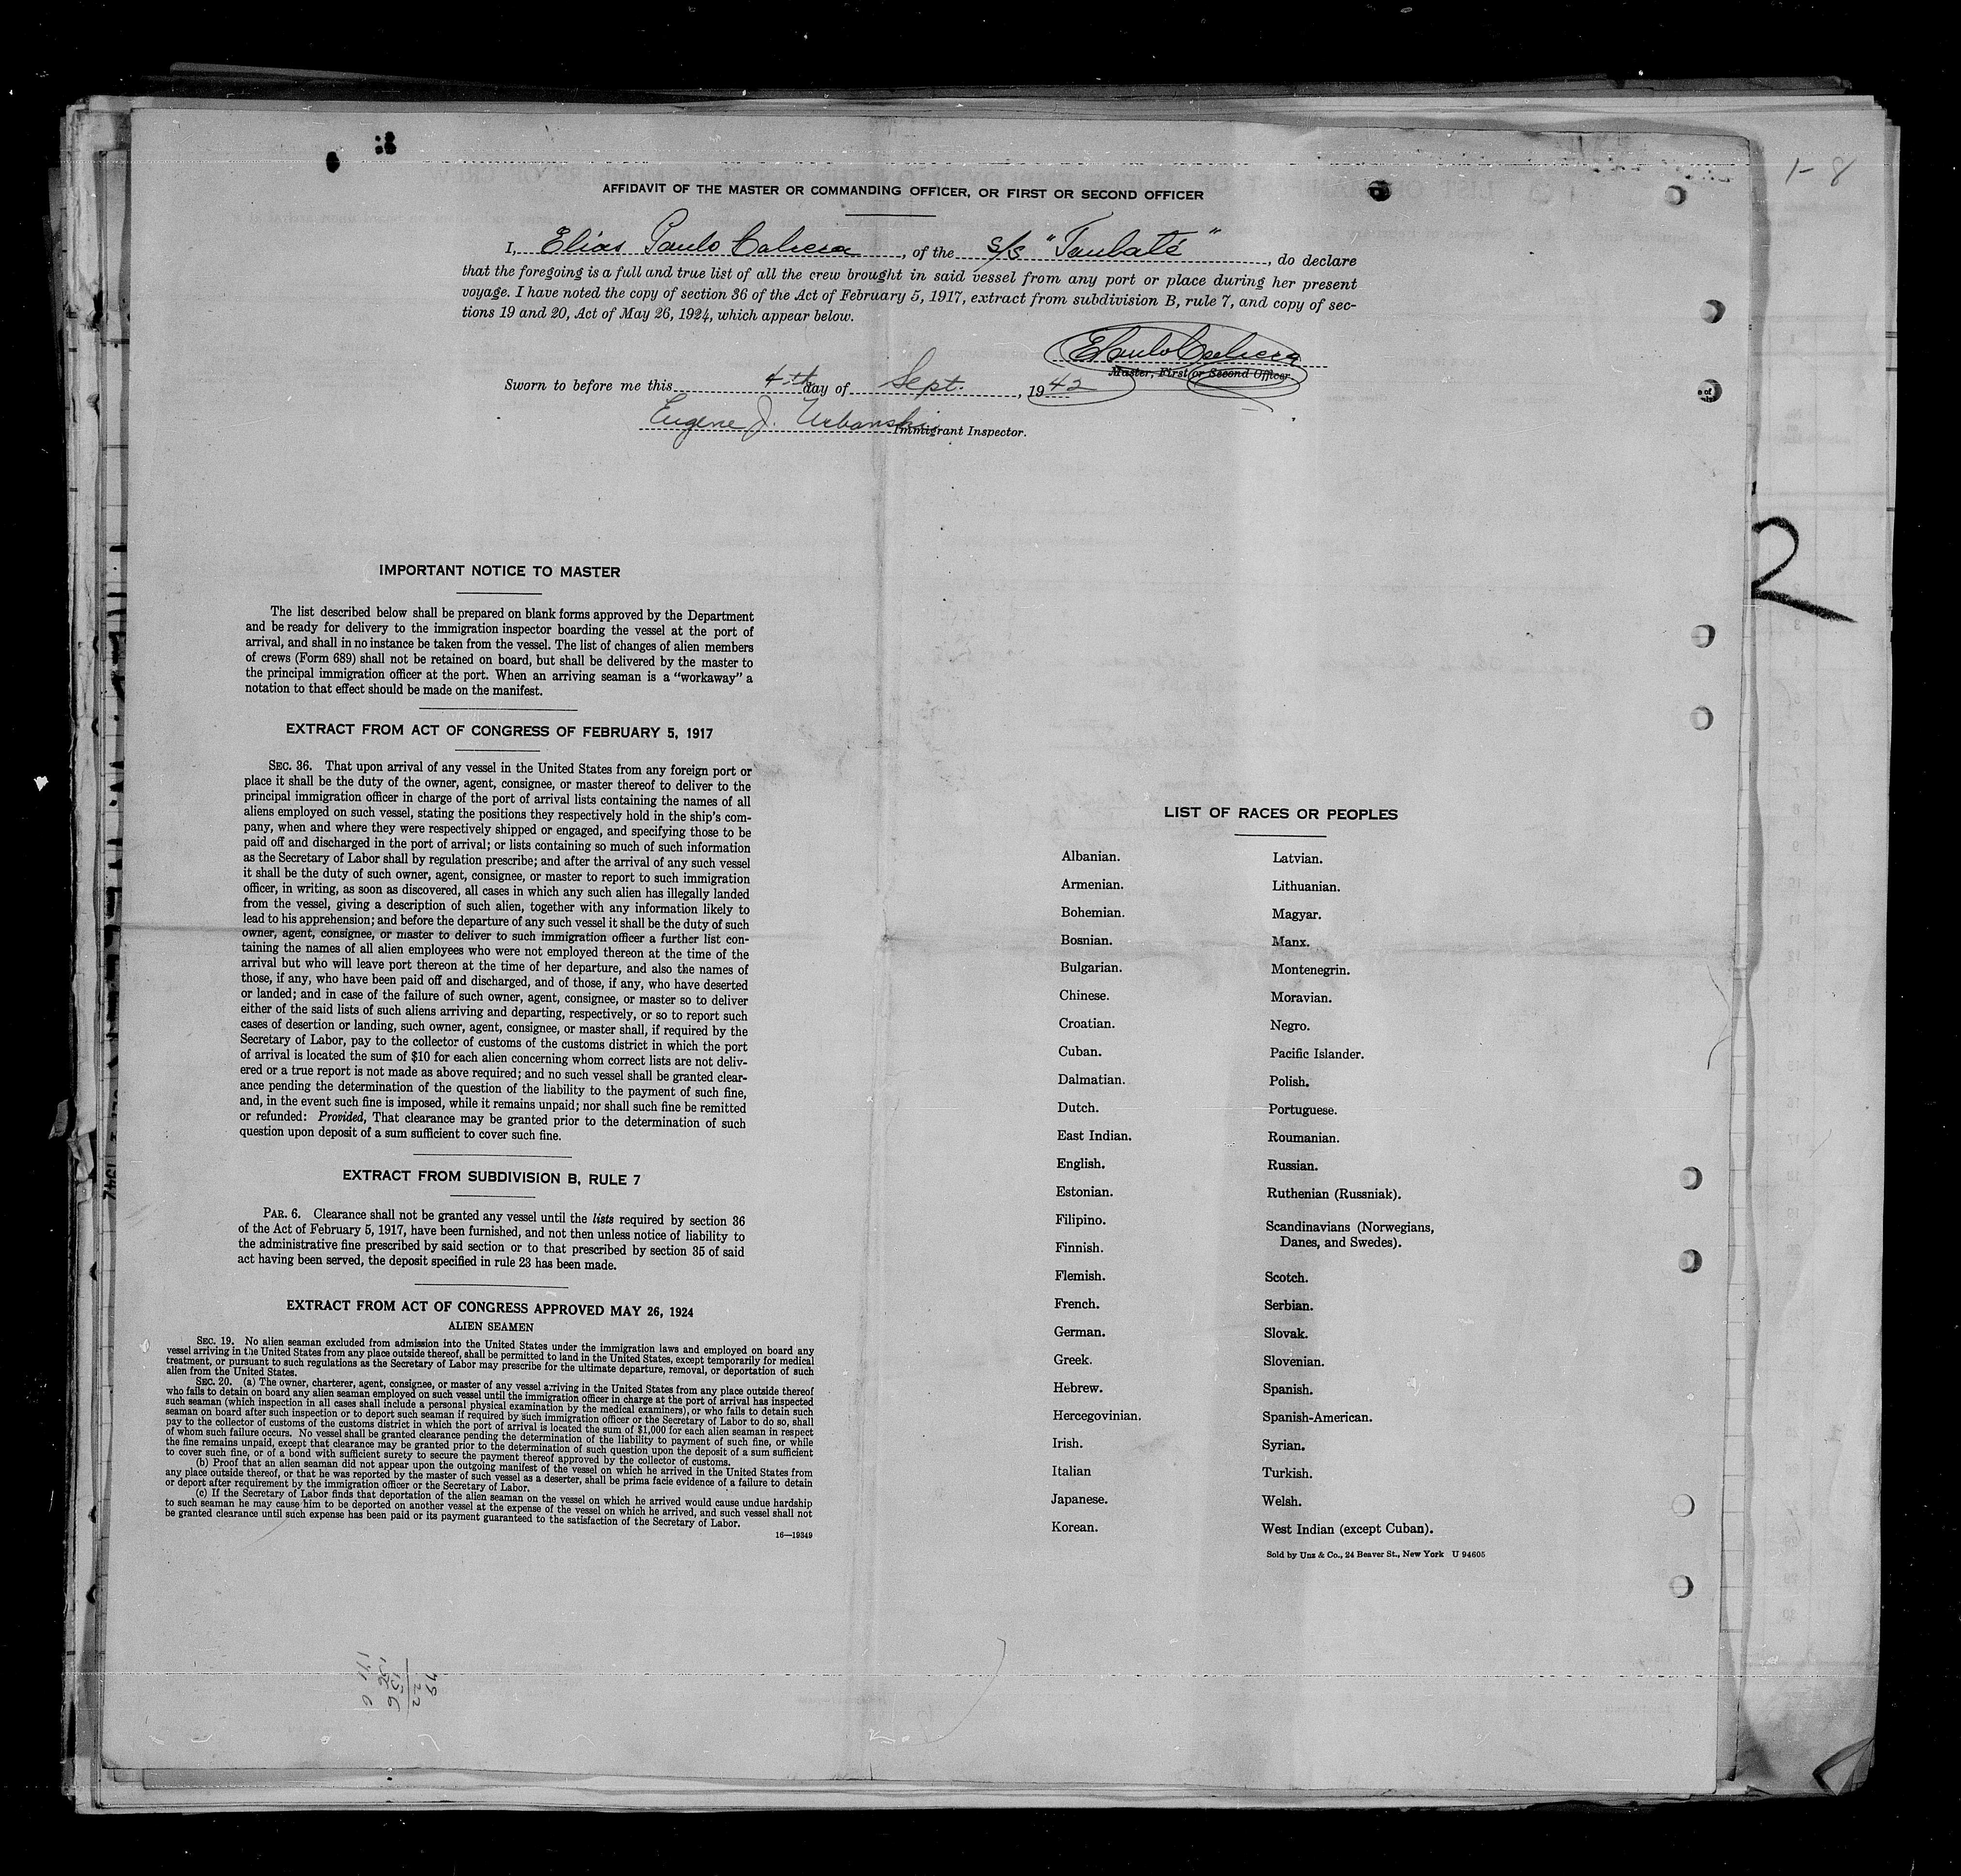 1-8
AFFIDAVIT OF THE MASTER OR COMMANDING OFFICER, OR FIRST OR SECOND OFFICER
I, Elias Paulo , of the s/s "Taubaté" , do declare
that the foregoing is a full and true list of all the crew brought in said vessel from any port or place during her present
voyage. I have noted the copy of section 36 of the Act of February 5, 1917, extract from subdivision B, rule 7, and copy of sec-
tions 19 and 20, Act of May 26, 1924, which appear below.
Master, First or Second Officer
Sworn to before me this 4th day of Sept. , 1942
Eugene J. Urbanski
Immigrant Inspector.
2
IMPORTANT NOTICE TO MASTER
The list described below shall be prepared on blank forms approved by the Department
and be ready for delivery to the immigration inspector boarding the vessel at the port of
arrival, and shall in no instance be taken from the vessel. The list of changes of alien members
of crews (Form 689) shall not be retained on board, but shall be delivered by the master to
the principal immigration officer at the port. When an arriving seaman is a "workaway" a
notation to that effect should be made on the manifest.
EXTRACT FROM ACT OF CONGRESS OF FEBRUARY 5, 1917
SEC. 36. That upon arrival of any vessel in the United States from any foreign port or
place it shall be the duty of the owner, agent, consignee, or master thereof to deliver to the
principal immigration officer in charge of the port of arrival lists containing the names of all
aliens employed on such vessel, stating the positions they respectively hold in the ship's com-
pany, when and where they were respectively shipped or engaged, and specifying those to be
paid off and discharged in the port of arrival; or lists containing so much of such information
as the Secretary of Labor shall by regulation prescribe; and after the arrival of any such vessel
it shall be the duty of such owner, agent, consignee, or master to report to such immigration
officer, in writing, as soon as discovered, all cases in which any such alien has illegally landed
from the vessel, giving a description of such alien, together with any information likely to
lead to his apprehension; and before the departure of any such vessel it shall be the duty of such
owner, agent, consignee, or master to deliver to such immigration officer a further list con-
taining the names of all alien employees who were not employed thereon at the time of the
arrival but who will leave port thereon at the time of her departure, and also the names of
those, if any, who have been paid off and discharged, and of those, if any, who have deserted
or landed; and in case of the failure of such owner, agent, consignee, or master so to deliver
either of the said lists of such aliens arriving and departing, respectively, or so to report such
cases of desertion or landing, such owner, agent, consignee, or master shall, if required by the
Secretary of Labor, pay to the collector of customs of the customs district in which the port
of arrival is located the sum of $10 for each alien concerning whom correct lists are not deliv-
ered or a true report is not made as above required; and no such vessel shall be granted clear-
ance pending the determination of the question of the liability to the payment of such fine,
and, in the event such fine is imposed, while it remains unpaid; nor shall such fine be remitted
or refunded: Provided, That clearance may be granted prior to the determination of such
question upon deposit of a sum sufficient to cover such fine.
EXTRACT FROM SUBDIVISION B, RULE 7
PAR. 6. Clearance shall not be granted any vessel until the lists required by section 36
of the Act of February 5, 1917, have been furnished, and not then unless notice of liability to
the administrative fine prescribed by said section or to that prescribed by section 35 of said
act having been served, the deposit specified in rule 23 has been made.
EXTRACT FROM ACT OF CONGRESS APPROVED MAY 26, 1924
ALIEN SEAMEN
SEC. 19. No alien seaman excluded from admission into the United States under the immigration laws and employed on board any
vessel arriving in the United States from any place outside thereof, shall be permitted to land in the United States, except temporarily for medical
treatment, or pursuant to such regulations as the Secretary of Labor may prescribe for the ultimate departure, removal, or deportation of such
alien from the United States.
SEC. 20. (a) The owner, charterer, agent, consignee, or master of any vessel arriving in the United States from any place outside thereof
who fails to detain on board any alien seaman employed on such vessel until the immigration officer in charge at the port of arrival has inspected
such seaman (which inspection in all cases shall include a personal physical examination by the medical examiners), or who fails to detain such
seaman on board after such inspection or to deport such seaman if required by such immigration officer or the Secretary of Labor to do so, shall
pay to the collector of customs of the customs district in which the port of arrival is located the sum of $1,000 for each alien seaman in respect
of whom such failure occurs. No vessel shall be granted clearance pending the determination of the liability to payment of such fine, or while
the fine remains unpaid, except that clearance may be granted prior to the determination of such question upon the deposit of a sum sufficient
to cover such fine, or of a bond with sufficient surety to secure the payment thereof approved by the collector of customs.
(b) Proof that an alien seaman did not appear upon the outgoing manifest of the vessel on which he arrived in the United States from
any place outside thereof, or that he was reported by the master of such vessel as a deserter, shall be prima facie evidence of a failure to detain
or deport after requirement by the immigration officer or the Secretary of Labor.
(c) If the Secretary of Labor finds that deportation of the alien seaman on the vessel on which he arrived would cause undue hardship
to such seaman he may cause him to be deported on another vessel at the expense of the vessel on which he arrived, and such vessel shall not
be granted clearance until such expense has been paid or its payment guaranteed to the satisfaction of the Secretary of Labor.
16—19349
LIST OF RACES OR PEOPLES
Albanian.
Armenian.
Bohemian.
Bosnian.
Bulgarian.
Chinese.
Croatian.
Cuban.
Dalmatian.
Dutch.
East Indian.
English.
Estonian.
Filipino.
Finnish.
Flemish.
French.
German.
Greek.
Hebrew.
Hercegovinian.
Irish.
Italian
Japanese.
Korean.
Latvian.
Lithuanian.
Magyar.
Manx.
Montenegrin.
Moravian.
Negro.
Pacific Islander.
Polish.
Portuguese.
Roumanian.
Russian.
Ruthenian (Russniak).
Scandinavians (Norwegians,
Danes, and Swedes).
Scotch.
Serbian.
Slovak.
Slovenian.
Spanish.
Spanish-American.
Syrian.
Turkish.
Welsh.
West Indian (except Cuban).
Sold by Unz & Co., 24 Beaver St., New York U 94605